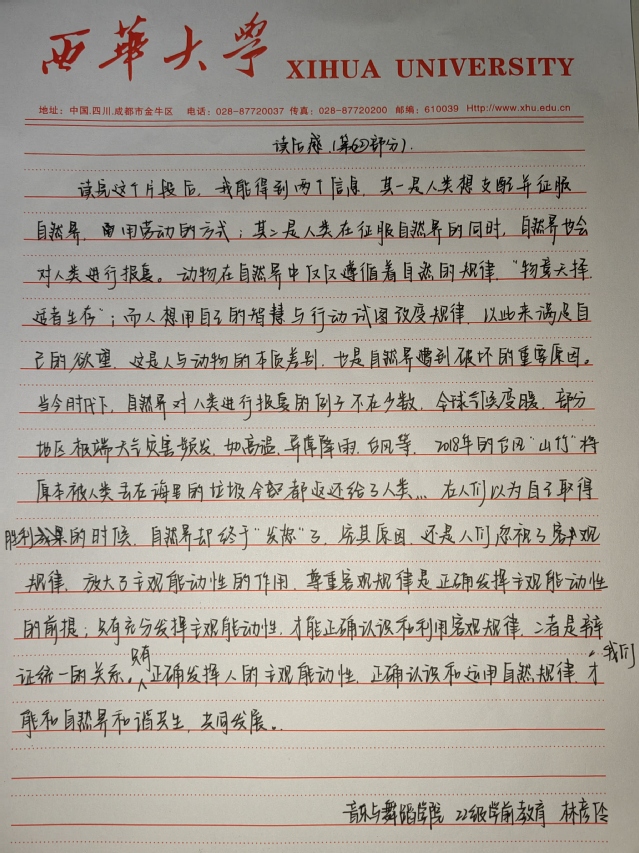 西華大学 XIHUA UNIVERSITY
地址：中国.四川.成都市金牛区 电话：028-87720037 传真：028-87720200 邮编：610039 Http://www.xhu.edu.cn
读后感（第60部分）.
读完这个片段后，我能得到两个信息，其一是人类想支配并征服
自然界，用劳动的方式；其二是人类在征服自然界的同时，自然界也会
对人类进行报复。动物在自然界中仅仅遵循着自然的规律，“物竞天择
适者生存”；而人想用自己的智慧与行动试图改变规律，以此来满足自
己的欲望，这是人与动物的本质差别，也是自然界遭到破坏的重要原因。
当今时代下，自然界对人类进行报复的例子不在少数，全球气候变暖，部分
地区极端天气灾害频发，如高温、异常降雨、台风等，2018年的台风“山竹”将
原本被人类丢在海里的垃圾全部都返还给了人类... 在人们以为自己取得
胜利成果的时候，自然界却终于“发怒”了，究其原因，还是人们忽视了客观
规律，放大了主观能动性的作用，尊重客观规律是正确发挥主观能动性
的前提；只有充分发挥主观能动性，才能正确认识和利用客观规律，二者是辩
证统一的关系。只有正确发挥人的主观能动性，正确认识和运用自然规律，我们才
能和自然界和谐共生，共同发展。
音乐与舞蹈学院 22级学前教育 林彦伶